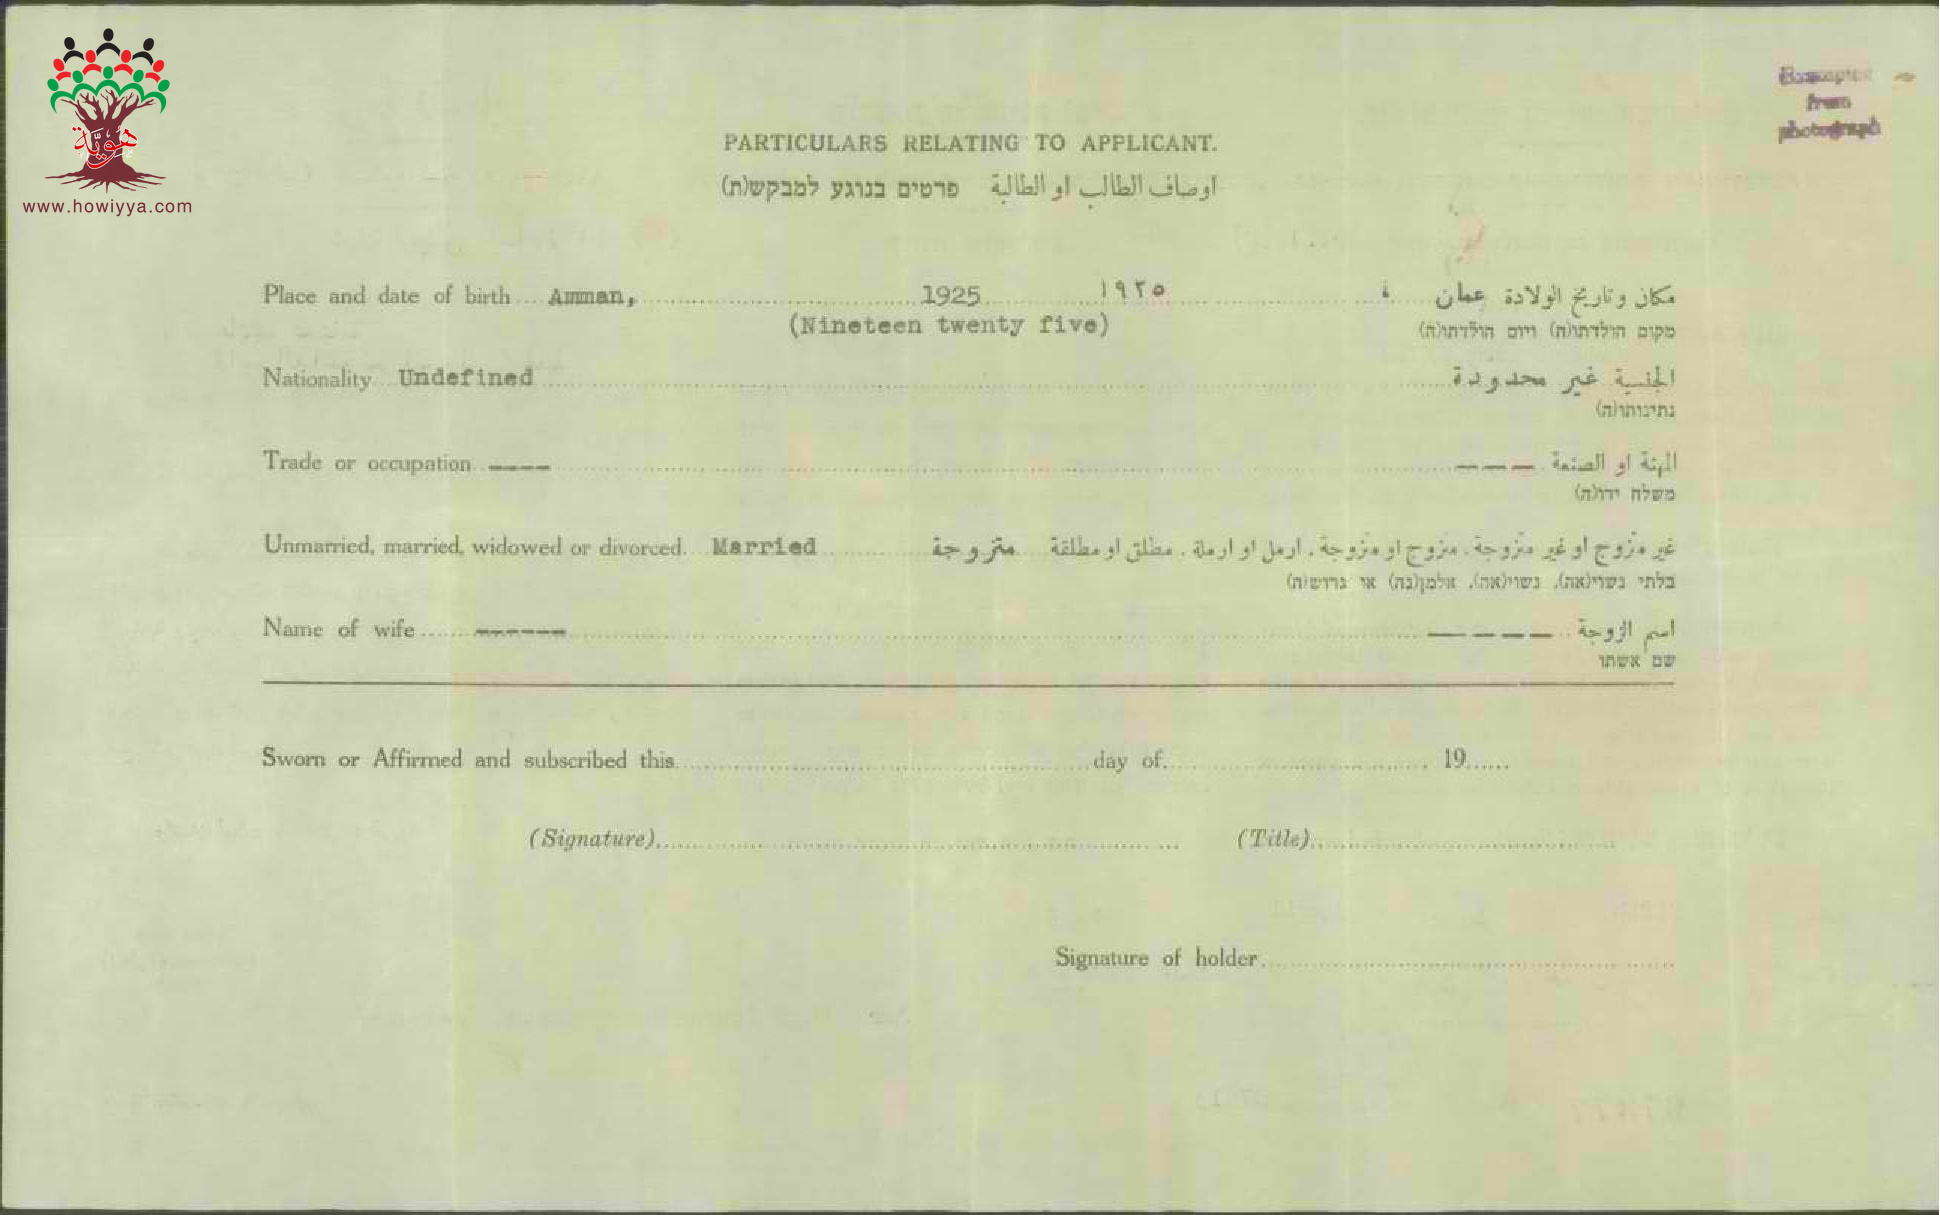 هويّة
www.howiyya.com
Exempted
from
photograph
PARTICULARS RELATING TO APPLICANT.
اوصاف الطالب او الطالبة פרטים בנוגע למבקש(ת)
Place and date of birth Amman, 1925 ١٩٢٥ ، مكان وتاريخ الولادة عمان
(Nineteen twenty five) מקום הולדתו(ה) ויום הולדתו(ה)
Nationality Undefined الجنسية غير محدودة
נתינותו(ה)
Trade or occupation ---- المهنة او الصنعة ---
משלח ידו(ה)
Unmarried, married, widowed or divorced. Married غير متزوج او غير متزوجة، متزوج او متزوجة، ارمل او ارملة، مطلق او مطلقة متزوجة
בלתי נשוי(אה), נשוי(אה), אלמן(נה) או גרוש(ה)
Name of wife ------ اسم الزوجة ----
שם אשתו
Sworn or Affirmed and subscribed this day of 19
(Signature) (Title)
Signature of holder